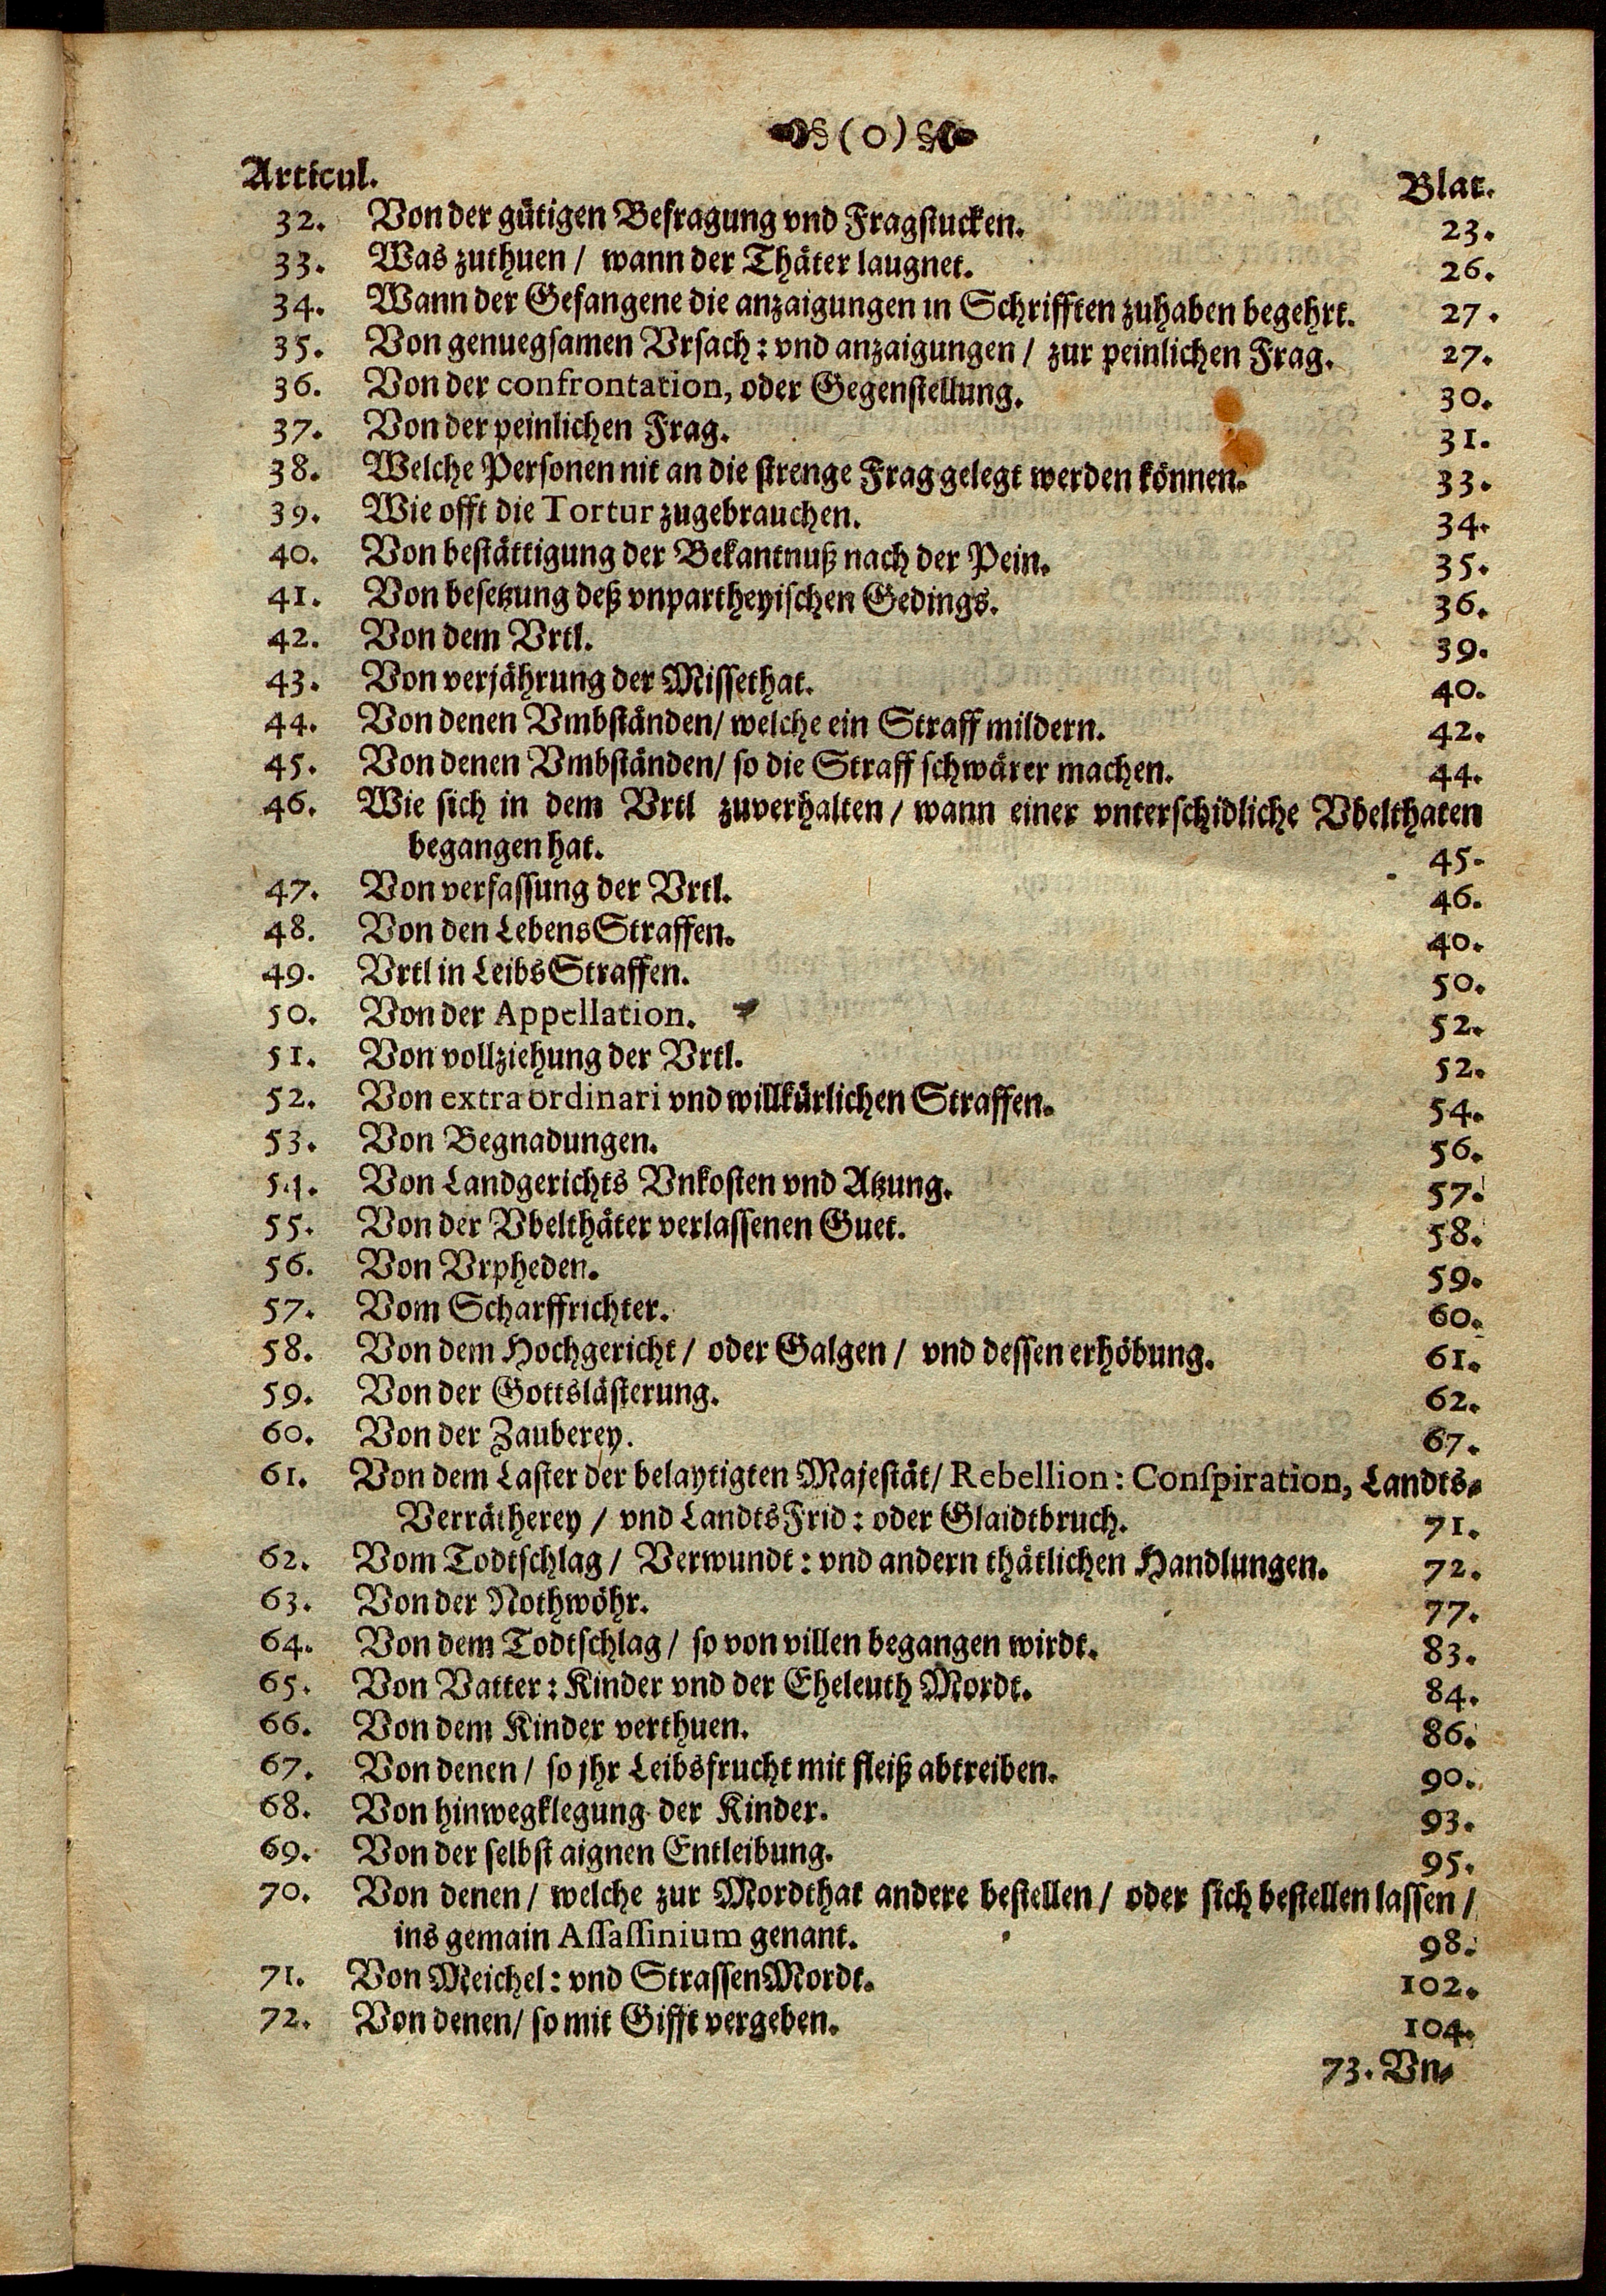 (0)
Articul. Blat.
32. Von der gütigen Befragung vnd Fragstucken. 23.
33. Was zuthuen / wann der Thäter laugnet. 26.
34. Wann der Gefangene die anzaigungen in Schrifften zuhaben begehrt. 27.
35. Von genuegsamen Vrsach: vnd anzaigungen / zur peinlichen Frag. 27.
36. Von der confrontation, oder Gegenstellung. 30.
37. Von der peinlichen Frag. 31.
38. Welche Personen nit an die strenge Frag gelegt werden können. 33.
39. Wie offt die Tortur zugebrauchen. 34.
40. Von bestättigung der Bekantnuß nach der Pein. 35.
41. Von besetzung deß vnpartheyischen Gedings. 36.
42. Von dem Vrtl. 39.
43. Von verjährung der Missethat. 40.
44. Von denen Vmbständen / welche ein Straff mildern. 42.
45. Von denen Vmbständen / so die Straff schwärer machen. 44.
46. Wie sich in dem Vrtl zuverhalten / wann einer vnterschidliche Vbelthaten
begangen hat. 45.
47. Von verfassung der Vrtl. 46.
48. Von den Lebens Straffen. 40.
49. Vrtl in Leibs Straffen. 50.
50. Von der Appellation. 52.
51. Von vollziehung der Vrtl. 52.
52. Von extraordinari vnd willkürlichen Straffen. 54.
53. Von Begnadungen. 56.
54. Von Landgerichts Vnkosten vnd Atzung. 57.
55. Von der Vbelthäter verlassenen Guet. 58.
56. Von Vrpheden. 59.
57. Vom Scharffrichter. 60.
58. Von dem Hochgericht / oder Galgen / vnd dessen erhöbung. 61.
59. Von der Gottslästerung. 62.
60. Von der Zauberey. 67.
61. Von dem Laster der belaytigten Majestät / Rebellion: Conspiration, Landts-
Verrätherey / vnd Landts Frid: oder Glaidtbruch. 71.
62. Vom Todtschlag / Verwundt: vnd andern thätlichen Handlungen. 72.
63. Von der Nothwöhr. 77.
64. Von dem Todtschlag / so von villen begangen wirdt. 83.
65. Von Vatter: Kinder vnd der Eheleuth Mordt. 84.
66. Von dem Kinder verthuen. 86.
67. Von denen / so jhr Leibsfrucht mit fleiß abtreiben. 90.
68. Von hinwegklegung der Kinder. 93.
69. Von der selbst aignen Entleibung. 95.
70. Von denen / welche zur Mordthat andere bestellen / oder sich bestellen lassen /
ins gemain Assassinium genant. 98.
71. Von Meichel: vnd Strassen Mordt. 102.
72. Von denen / so mit Gifft vergeben. 104.
73. Vn-